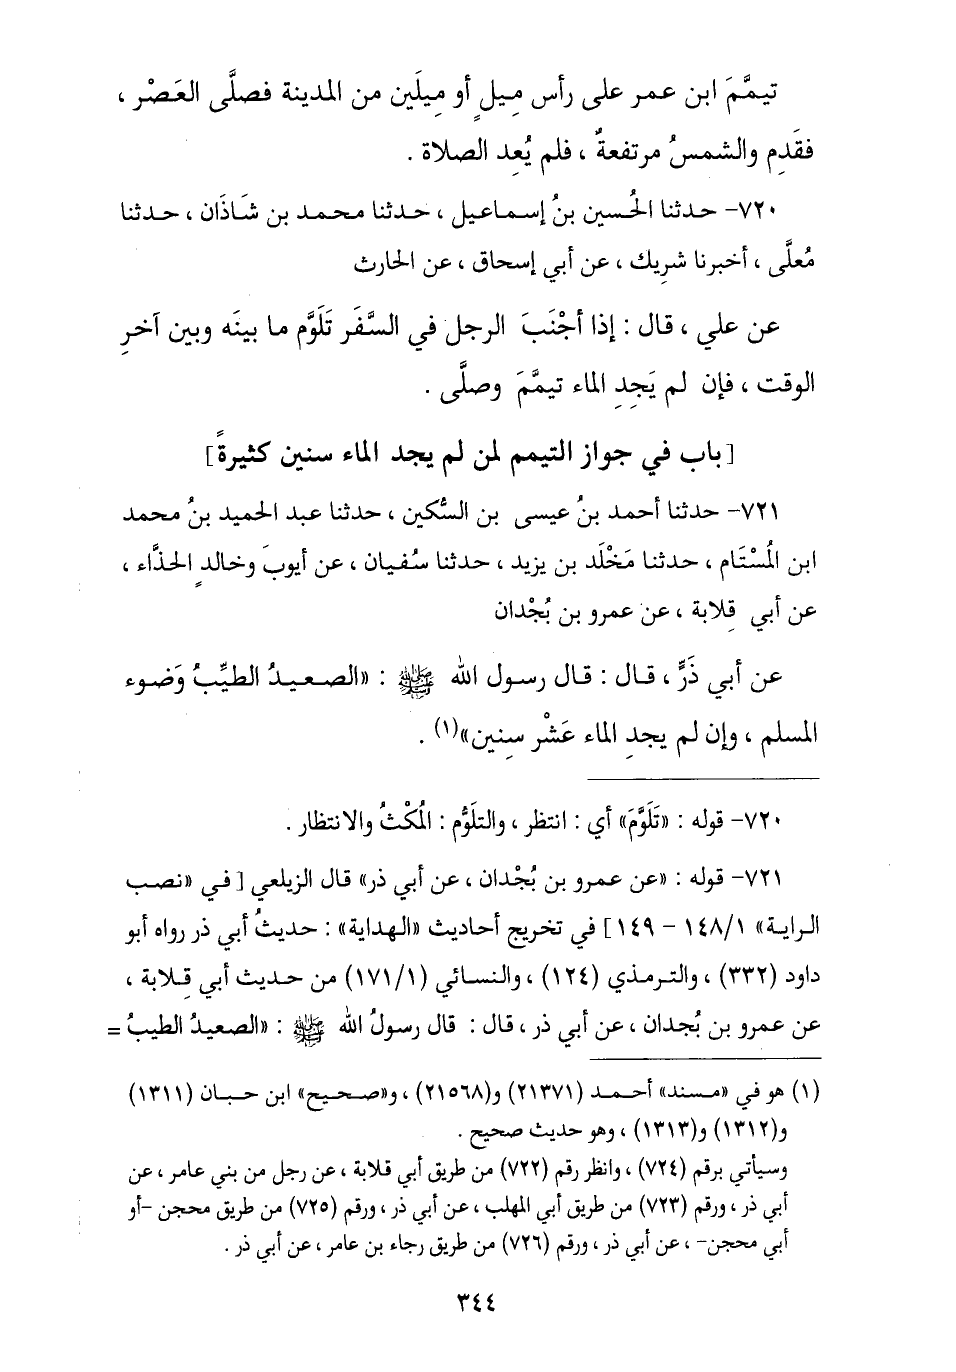 تيمَّمَ ابن عمر على رأس مِيلٍ أو مِيلَين من المدينة فصلَّى العَصْر ،
فقَدِم والشمسُ مرتفعةٌ ، فلم يُعِد الصلاة .
٧٢٠- حدثنا الحُسين بنُ إسماعيل ، حدثنا محمد بن شَاذَان ، حدثنا
مُعلَّى ، أخبرنا شَرِيك ، عن أبي إسحاق ، عن الحارث
عن علي ، قال : إذا أجْنَبَ الرجل في السَّفَر تَلَوَّم ما بينَه وبين آخرِ
الوقت ، فإن لم يَجِدِ الماء تيمَّمَ وصلَّى .
[باب في جواز التيمم لمن لم يجد الماء سنين كثيرةً]
٧٢١- حدثنا أحمد بنُ عيسى بن السُّكين ، حدثنا عبد الحميد بنُ محمد
ابن المُسْتَام ، حدثنا مَخْلَد بن يزيد ، حدثنا سُفيان ، عن أيوبَ وخالدٍ الحذَّاء ،
عن أبي قِلابة ، عن عمرو بن بُجْدان
عن أبي ذَرٍّ ، قال : قال رسول الله ﷺ : «الصعيدُ الطيِّبُ وَضوء
المسلم ، وإن لم يجدِ الماء عَشْر سِنين»(١) .
٧٢٠- قوله : «تَلَوَّمَ» أي : انتظر ، والتلَوُّم : المُكْثُ والانتظار .
٧٢١- قوله : «عن عمرو بن بُجْدان ، عن أبي ذر» قال الزيلعي [في «نصب
الراية» ١٤٨/١ - ١٤٩] في تخريج أحاديث «الهداية» : حديثُ أبي ذر رواه أبو
داود (٣٣٢) ، والترمذي (١٢٤) ، والنسائي (١٧١/١) من حديث أبي قِلابة ،
عن عمرو بن بُجدان ، عن أبي ذر ، قال : قال رسولُ الله ﷺ : «الصعيدُ الطيبُ =
(١) هو في «مسند» أحمد (٢١٣٧١) و(٢١٥٦٨) ، و«صحيح» ابن حبان (١٣١١)
و(١٣١٢) و(١٣١٣) ، وهو حديث صحيح .
وسيأتي برقم (٧٢٤) ، وانظر رقم (٧٢٢) من طريق أبي قلابة ، عن رجل من بني عامر ، عن
أبي ذر ، ورقم (٧٢٣) من طريق أبي المهلب ، عن أبي ذر ، ورقم (٧٢٥) من طريق محجن -أو
أبي محجن- ، عن أبي ذر ، ورقم (٧٢٦) من طريق رجاء بن عامر ، عن أبي ذر .
٣٤٤